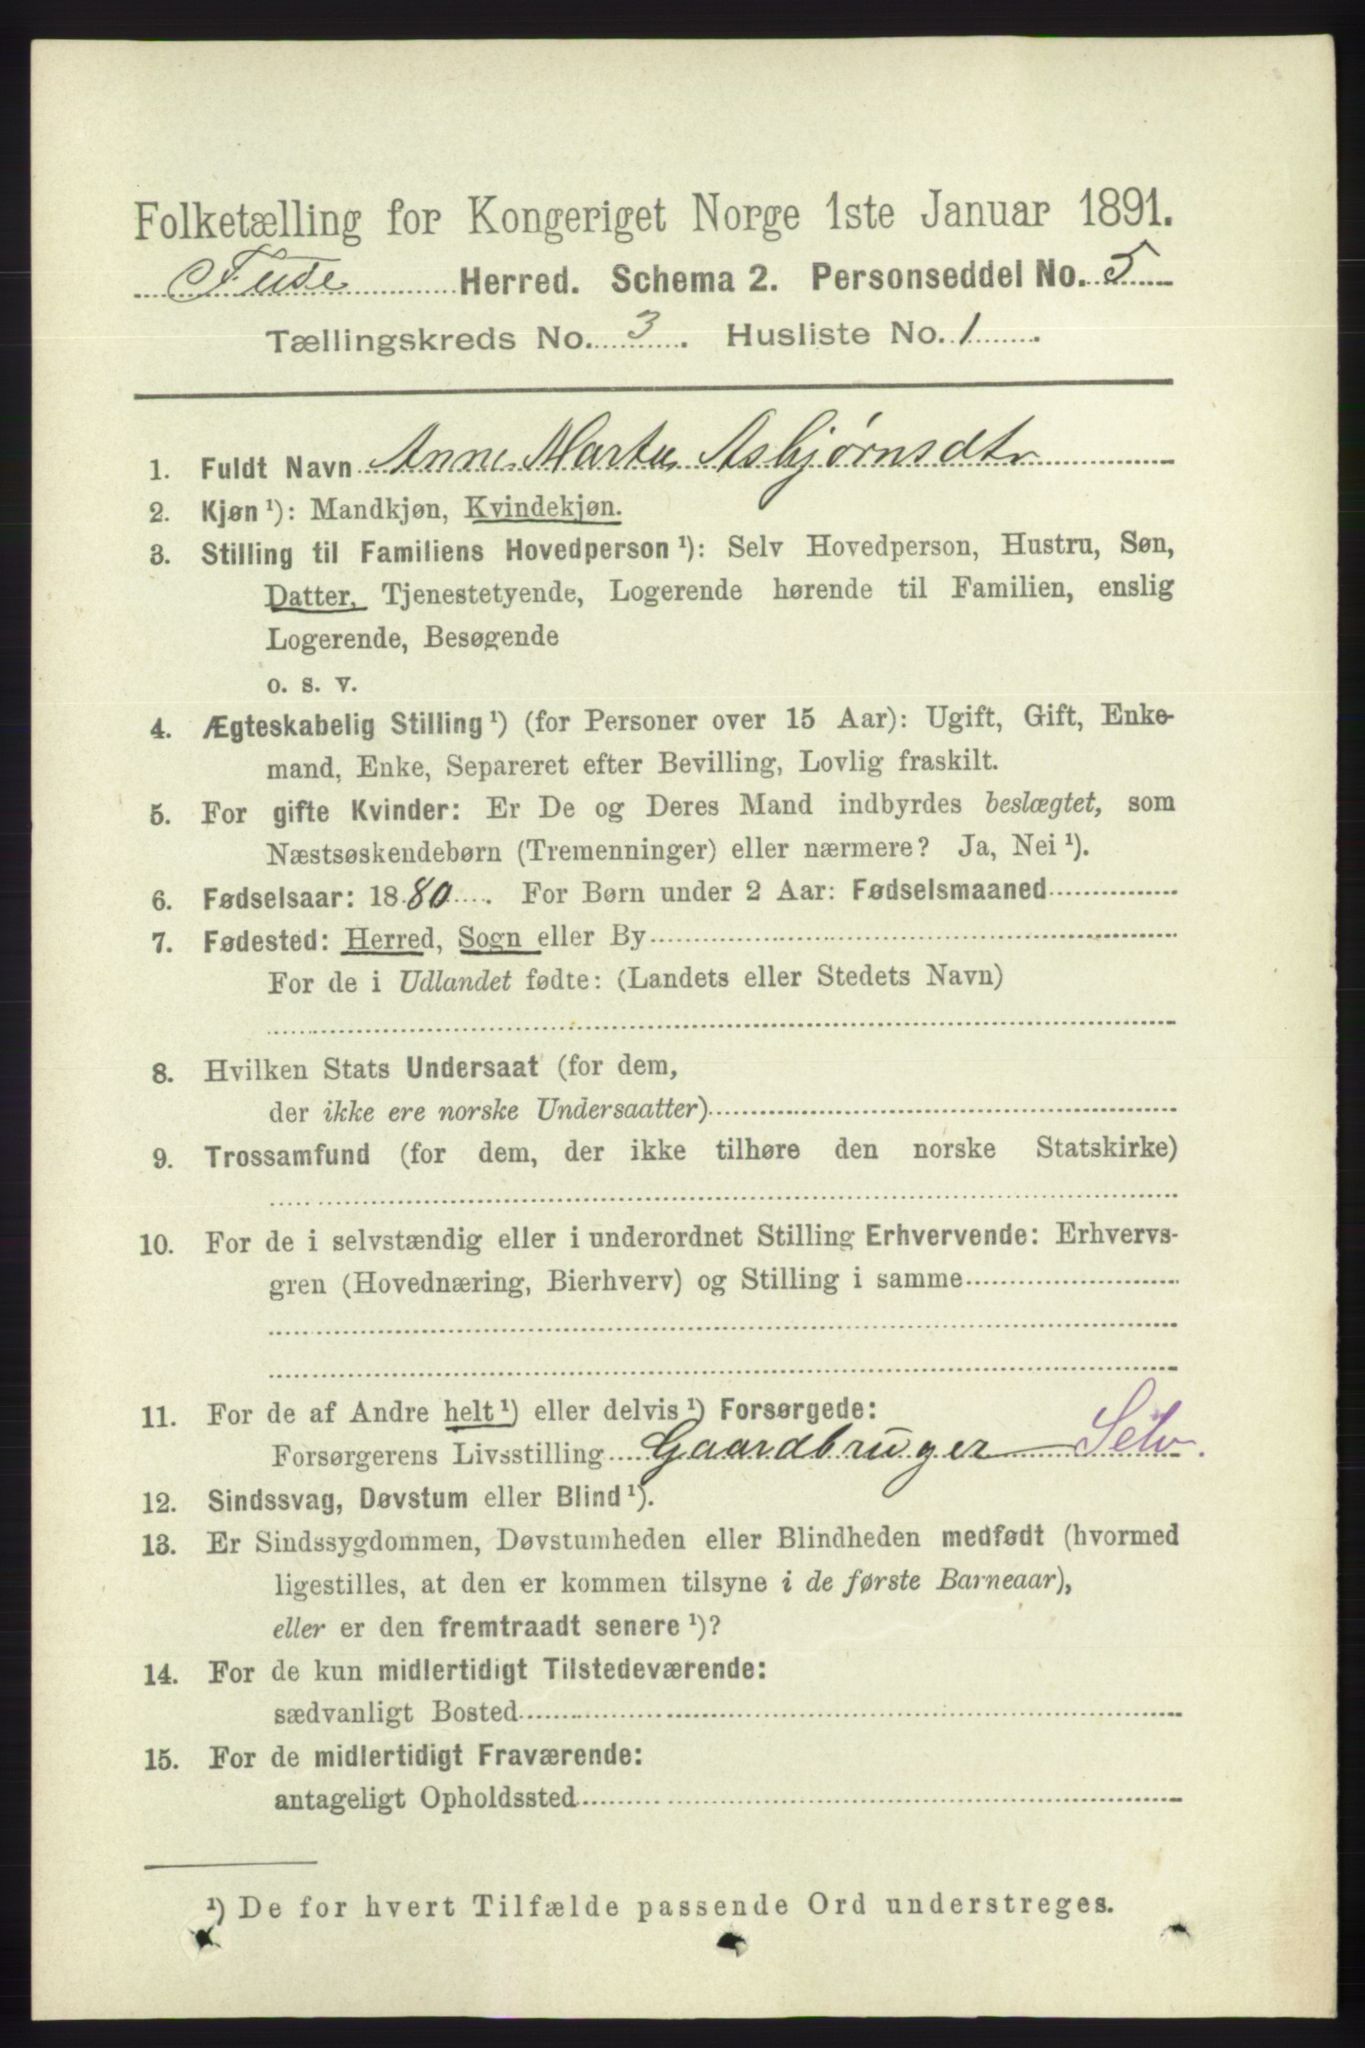 Folketælling for Kongeriget Norge 1ste Januar 1891.
Fuse Herred. Schema 2. Personseddel No. 5
Tællingskreds No. 3. Husliste No. 1.
1. Fuldt Navn Anne Marta Asbjørnsdtr
2. Kjøn ¹): Mandkjøn, Kvindekjøn.
3. Stilling til Familiens Hovedperson ¹): Selv Hovedperson, Hustru, Søn,
Datter, Tjenestetyende, Logerende hørende til Familien, enslig
Logerende, Besøgende
o. s. v.
4. Ægteskabelig Stilling ¹) (for Personer over 15 Aar): Ugift, Gift, Enke-
mand, Enke, Separeret efter Bevilling, Lovlig fraskilt.
5. For gifte Kvinder: Er De og Deres Mand indbyrdes beslægtet, som
Næstsøskendebørn (Tremenninger) eller nærmere? Ja, Nei ¹).
6. Fødselsaar: 1880. For Børn under 2 Aar: Fødselsmaaned
7. Fødested: Herred, Sogn eller By
For de i Udlandet fødte: (Landets eller Stedets Navn)
8. Hvilken Stats Undersaat (for dem,
der ikke ere norske Undersaatter)
9. Trossamfund (for dem, der ikke tilhøre den norske Statskirke)
10. For de i selvstændig eller i underordnet Stilling Erhvervende: Erhvervs-
gren (Hovednæring, Bierhverv) og Stilling i samme
11. For de af Andre helt ¹) eller delvis ¹) Forsørgede:
Forsørgerens Livsstilling Gaardbruger Selv.
12. Sindssvag, Døvstum eller Blind ¹).
13. Er Sindssygdommen, Døvstumheden eller Blindheden medfødt (hvormed
ligestilles, at den er kommen tilsyne i de første Barneaar),
eller er den fremtraadt senere ¹)?
14. For de kun midlertidigt Tilstedeværende:
sædvanligt Bosted
15. For de midlertidigt Fraværende:
antageligt Opholdssted
¹) De for hvert Tilfælde passende Ord understreges.